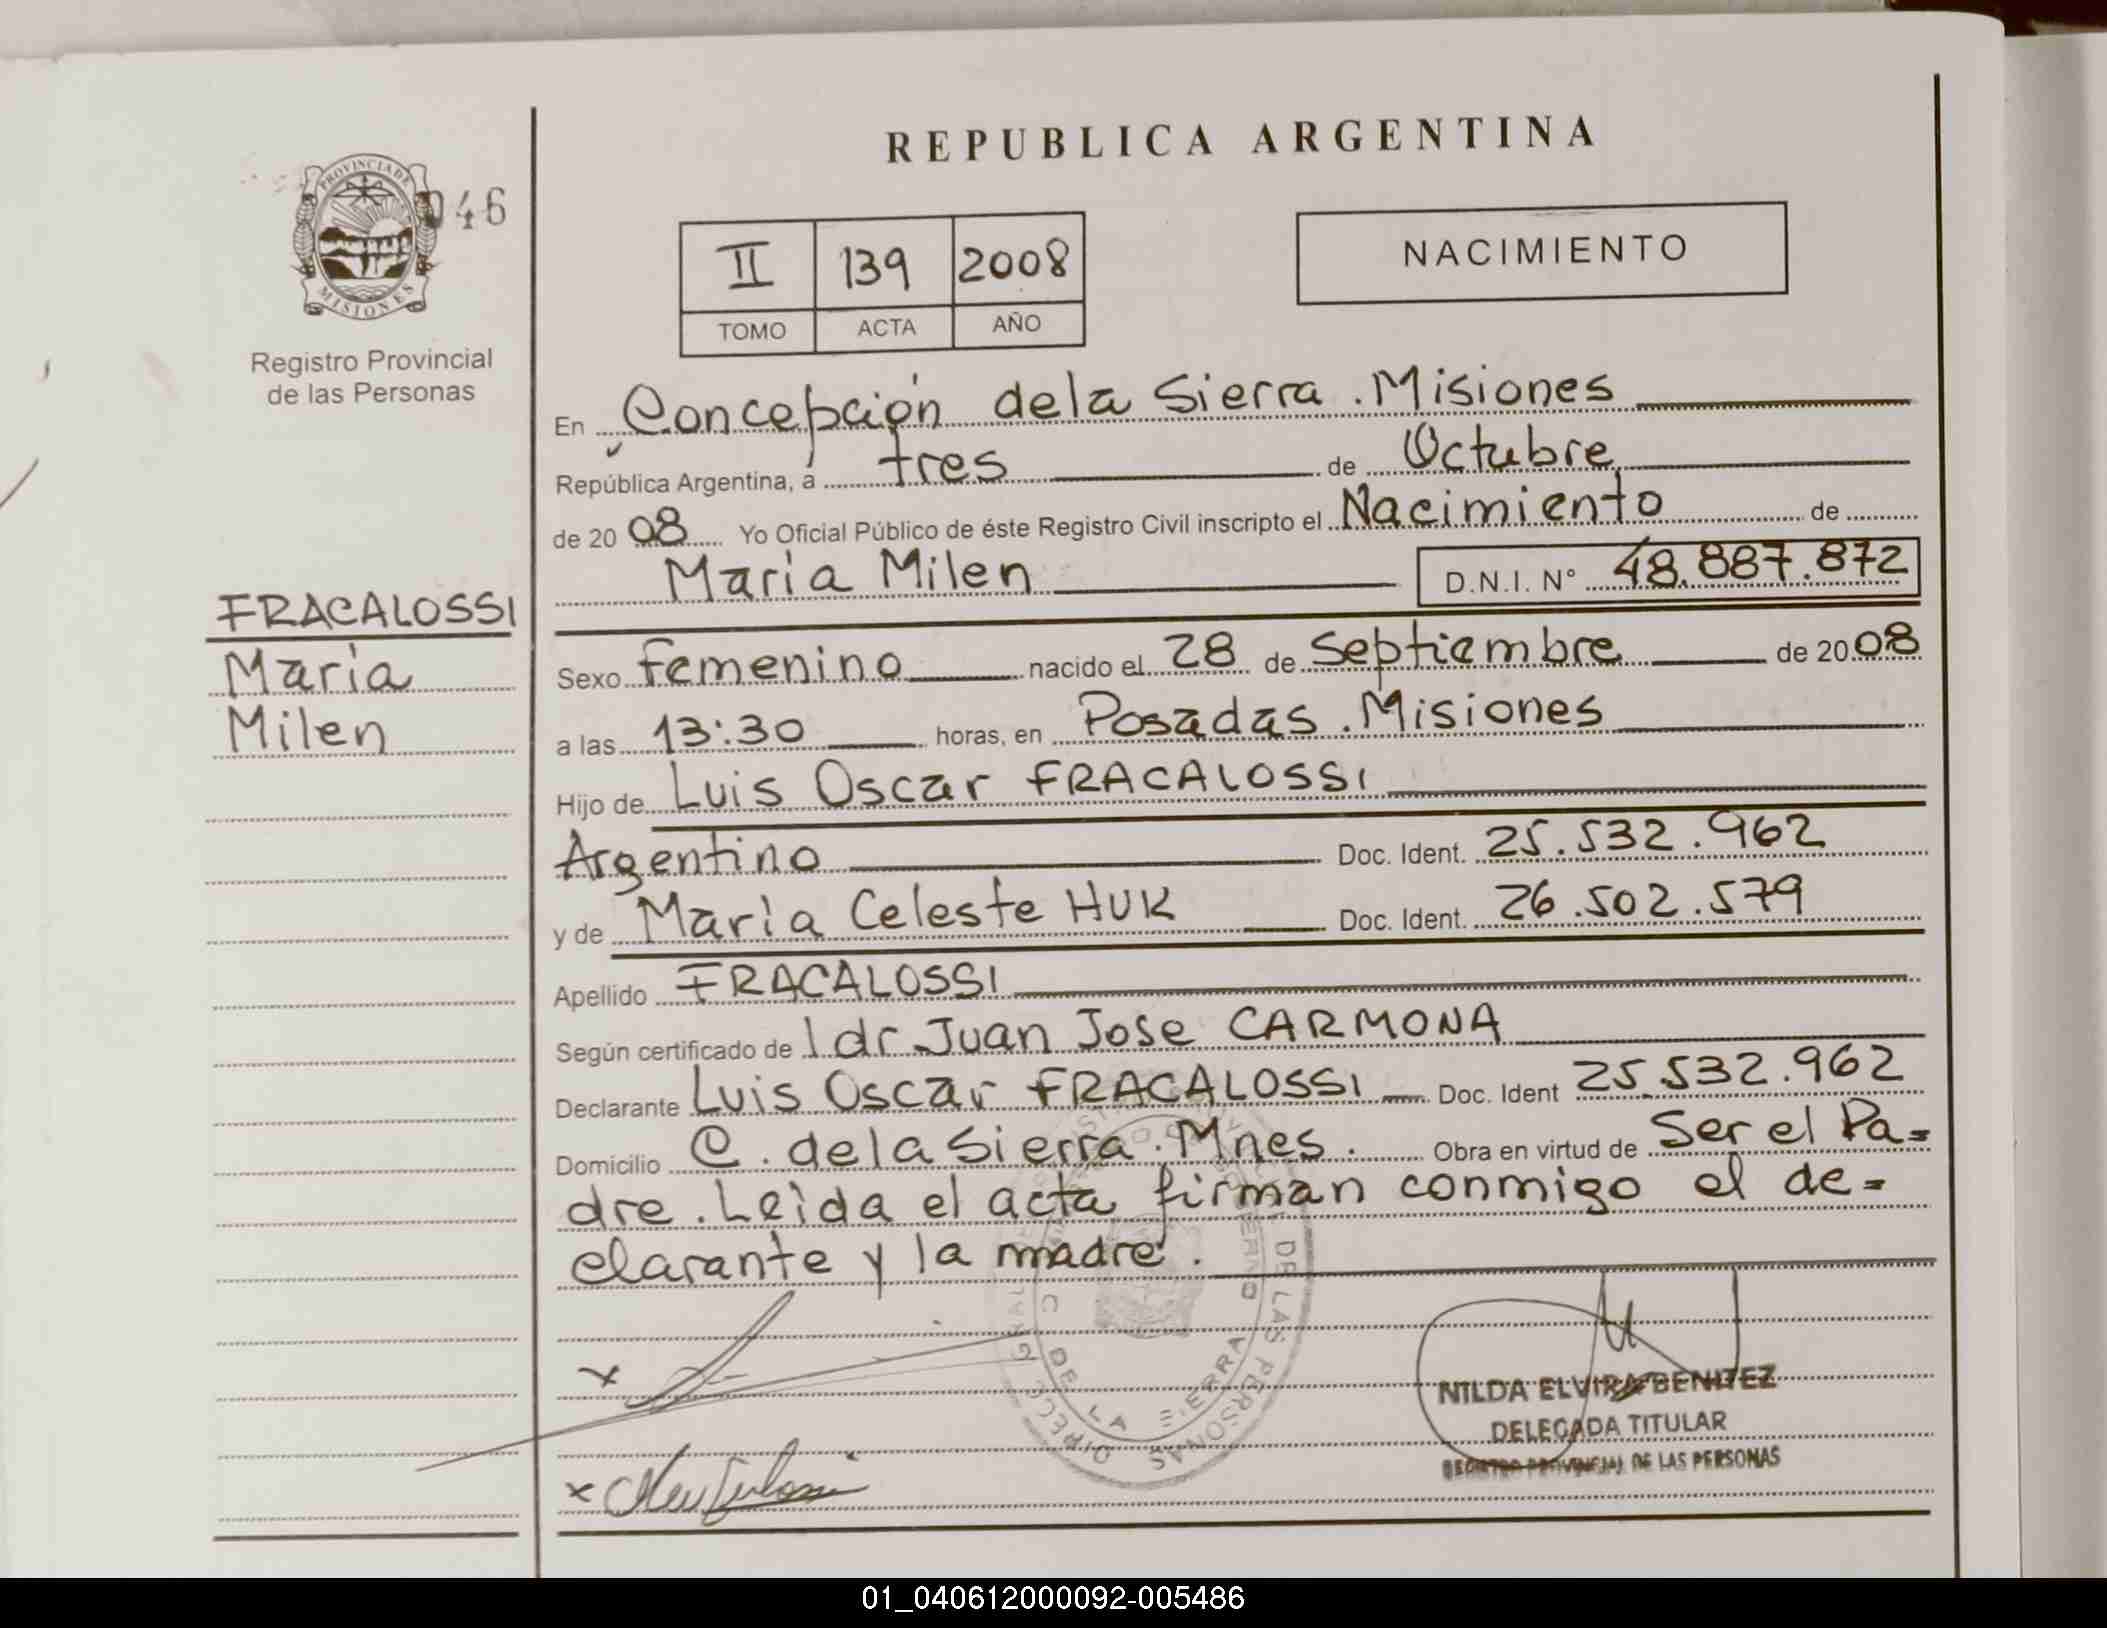 REPUBLICA ARGENTINA
PROVINCIA DE
MISIONES
046
Registro Provincial
de las Personas
II 139 2008
TOMO ACTA AÑO
NACIMIENTO
En Concepción dela Sierra. Misiones
República Argentina, a tres de Octubre
de 2008 Yo Oficial Público de éste Registro Civil inscripto el Nacimiento de
Maria Milen D.N.I. N° 48.887.872
FRACALOSSI
Maria
Milen
Sexo Femenino nacido el 28 de Septiembre de 2008
a las 13:30 horas, en Posadas. Misiones
Hijo de Luis Oscar FRACALOSSI
Argentino Doc. Ident. 25.532.962
y de Maria Celeste HUK Doc. Ident. 26.502.579
Apellido FRACALOSSI
Según certificado de l dr Juan Jose CARMONA
Declarante Luis Oscar FRACALOSSI Doc. Ident 25.532.962
Domicilio C. dela Sierra. Mnes. Obra en virtud de Ser el Pa=
dre. Leida el acta firman conmigo el de=
clarante y la madre.
DE LAS PERSONAS
DE LA
NILDA ELVIRA BENITEZ
DELEGADA TITULAR
REGISTRO PROVINCIAL DE LAS PERSONAS
01_040612000092-005486